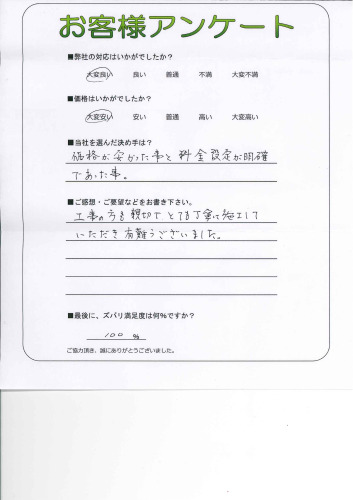 お客様アンケート
■弊社の対応はいかがでしたか？
大変良い 良い 普通 不満 大変不満
■価格はいかがでしたか？
大変安い 安い 普通 高い 大変高い
■当社を選んだ決め手は？
価格が安かった事と料金設定が明確
であった事。
■ご感想・ご要望などをお書き下さい。
工事の方も親切でとても丁寧に施工して
いただき有難うございました。
■最後に、ズバリ満足度は何%ですか？
100 %
ご協力頂き、誠にありがとうございました。